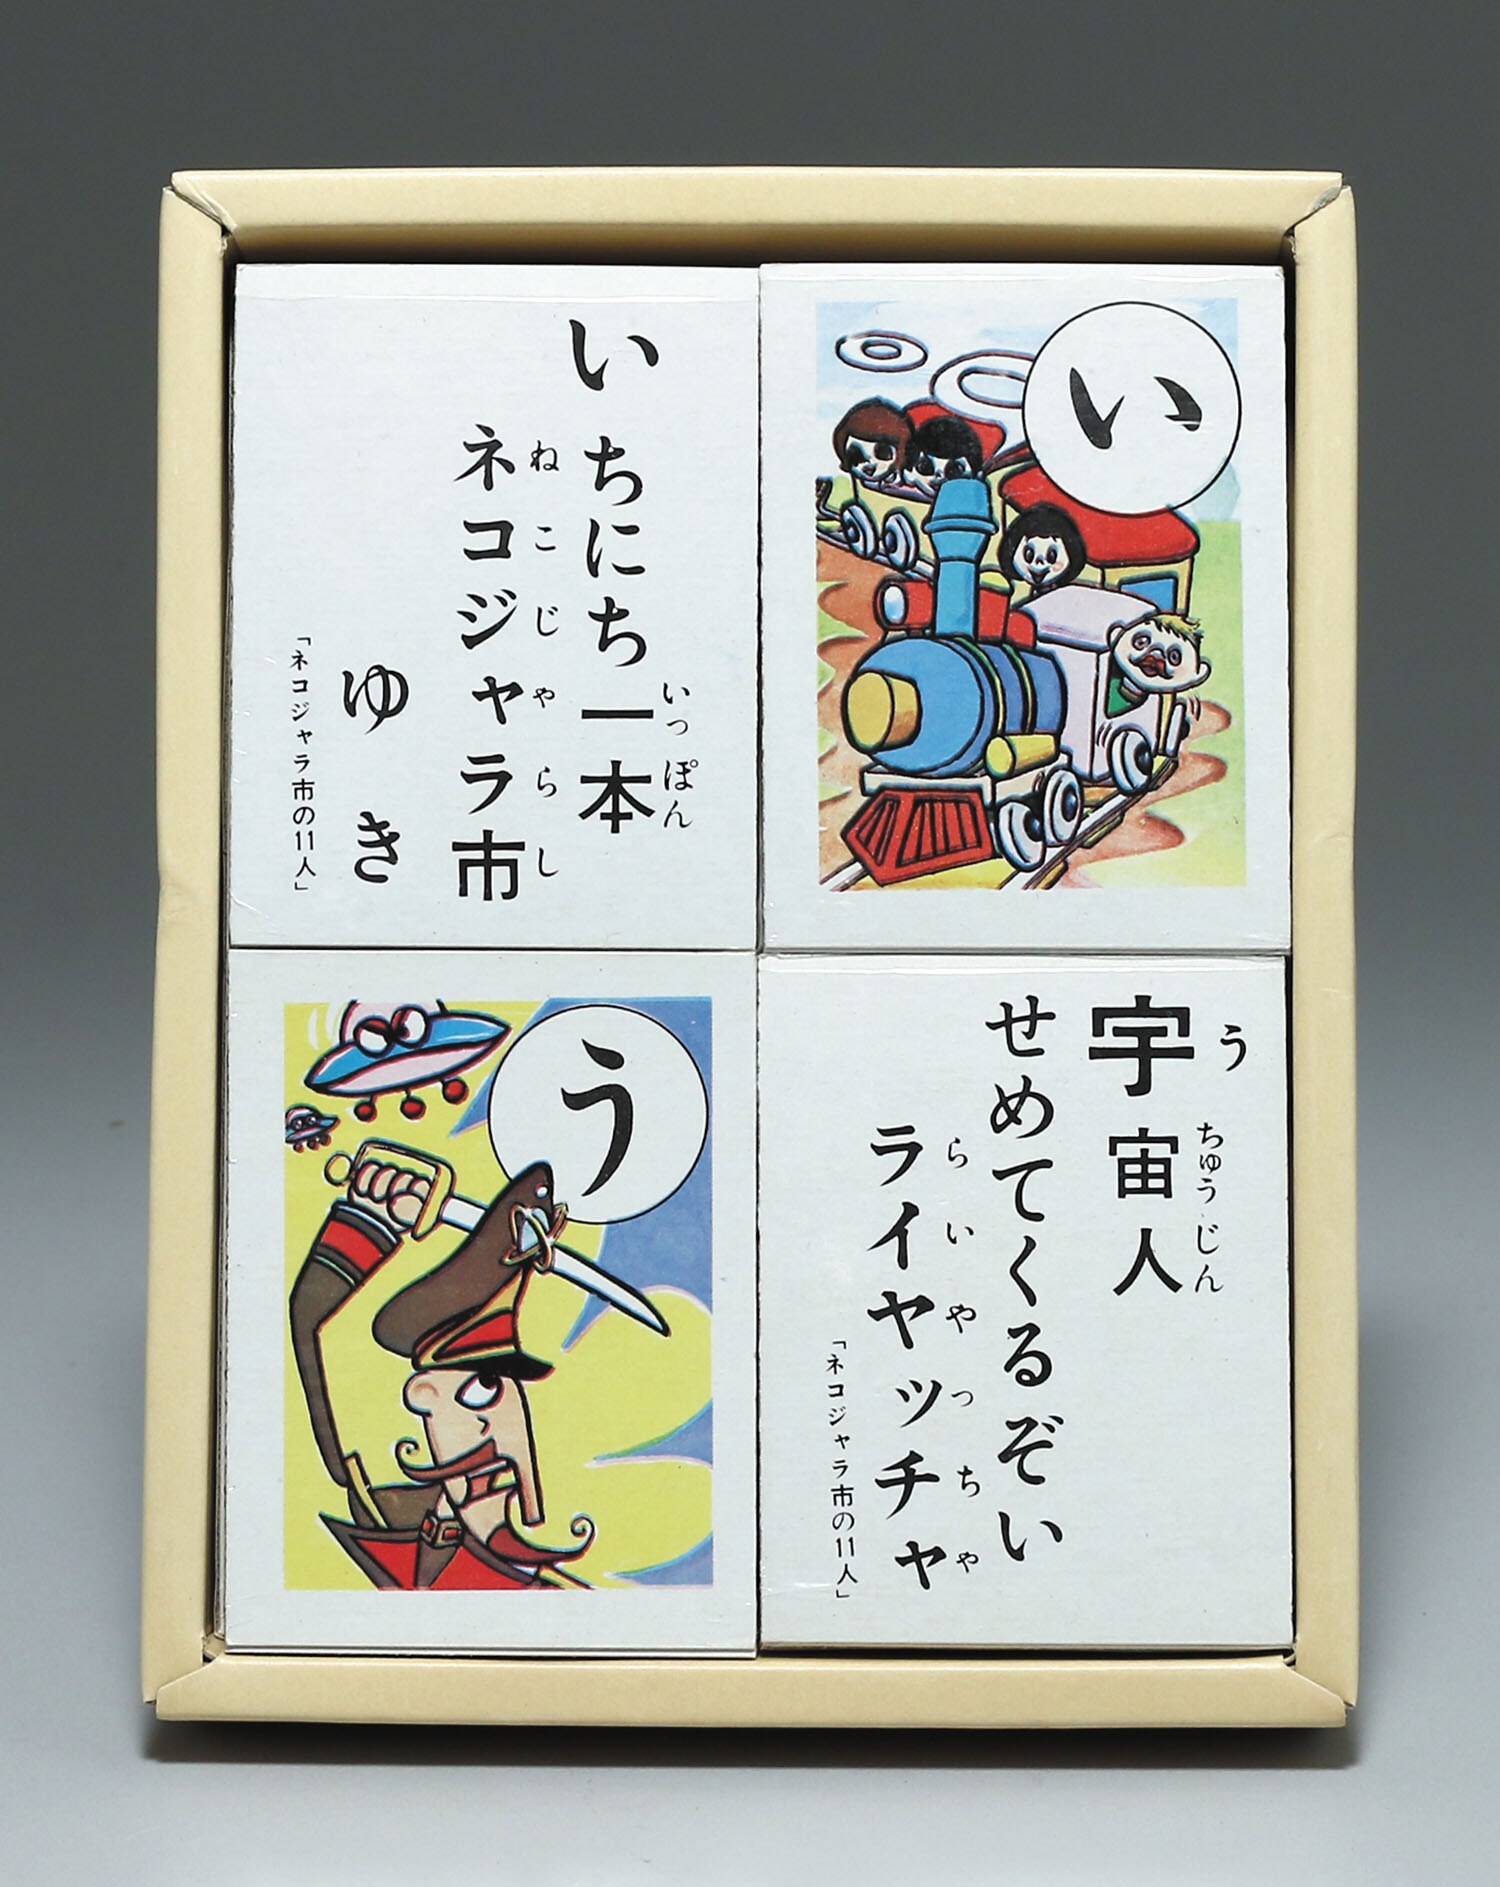 いちにち一本
いっぽん
ネコジャラ市
ねこじゃらし
ゆき
「ネコジャラ市の11人」
い
う
宇宙人
うちゅうじん
せめてくるぞい
ライヤッチャ
らいやっちゃ
「ネコジャラ市の11人」